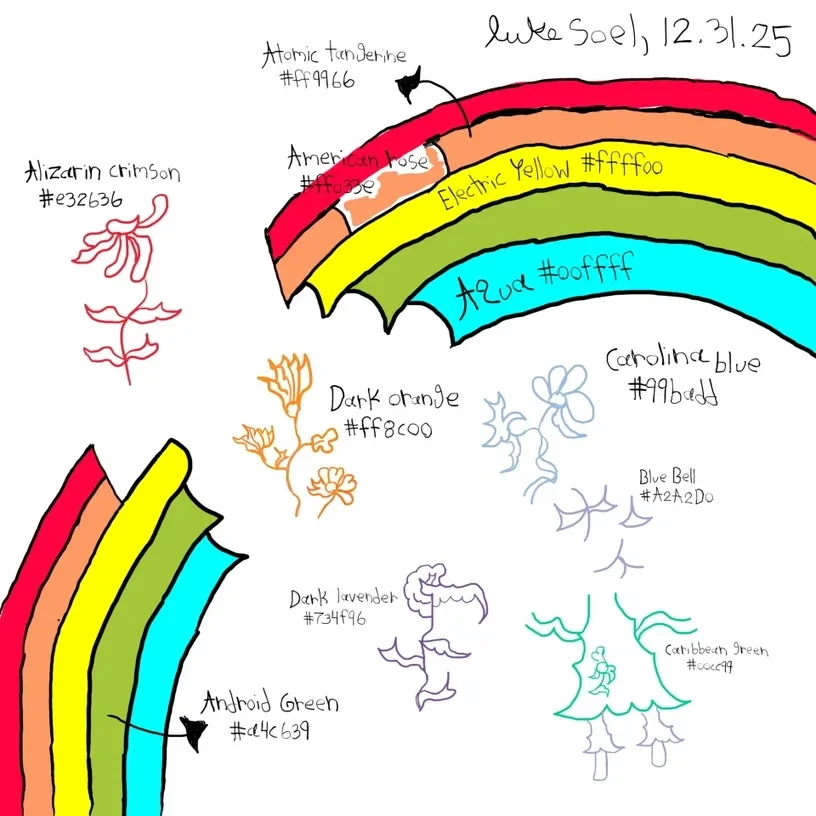 luke Soel, 12.31.25
Atomic tangerine
#ff9966
American rose
#ff033e
Electric Yellow #ffff00
Alizarin crimson
#e32636
Aqua #00ffff
Carolina blue
#99badd
Dark orange
#ff8c00
Blue Bell
#A2A2D0
Dark lavender
#734f96
Caribbean green
#00cc99
Android Green
#a4c639